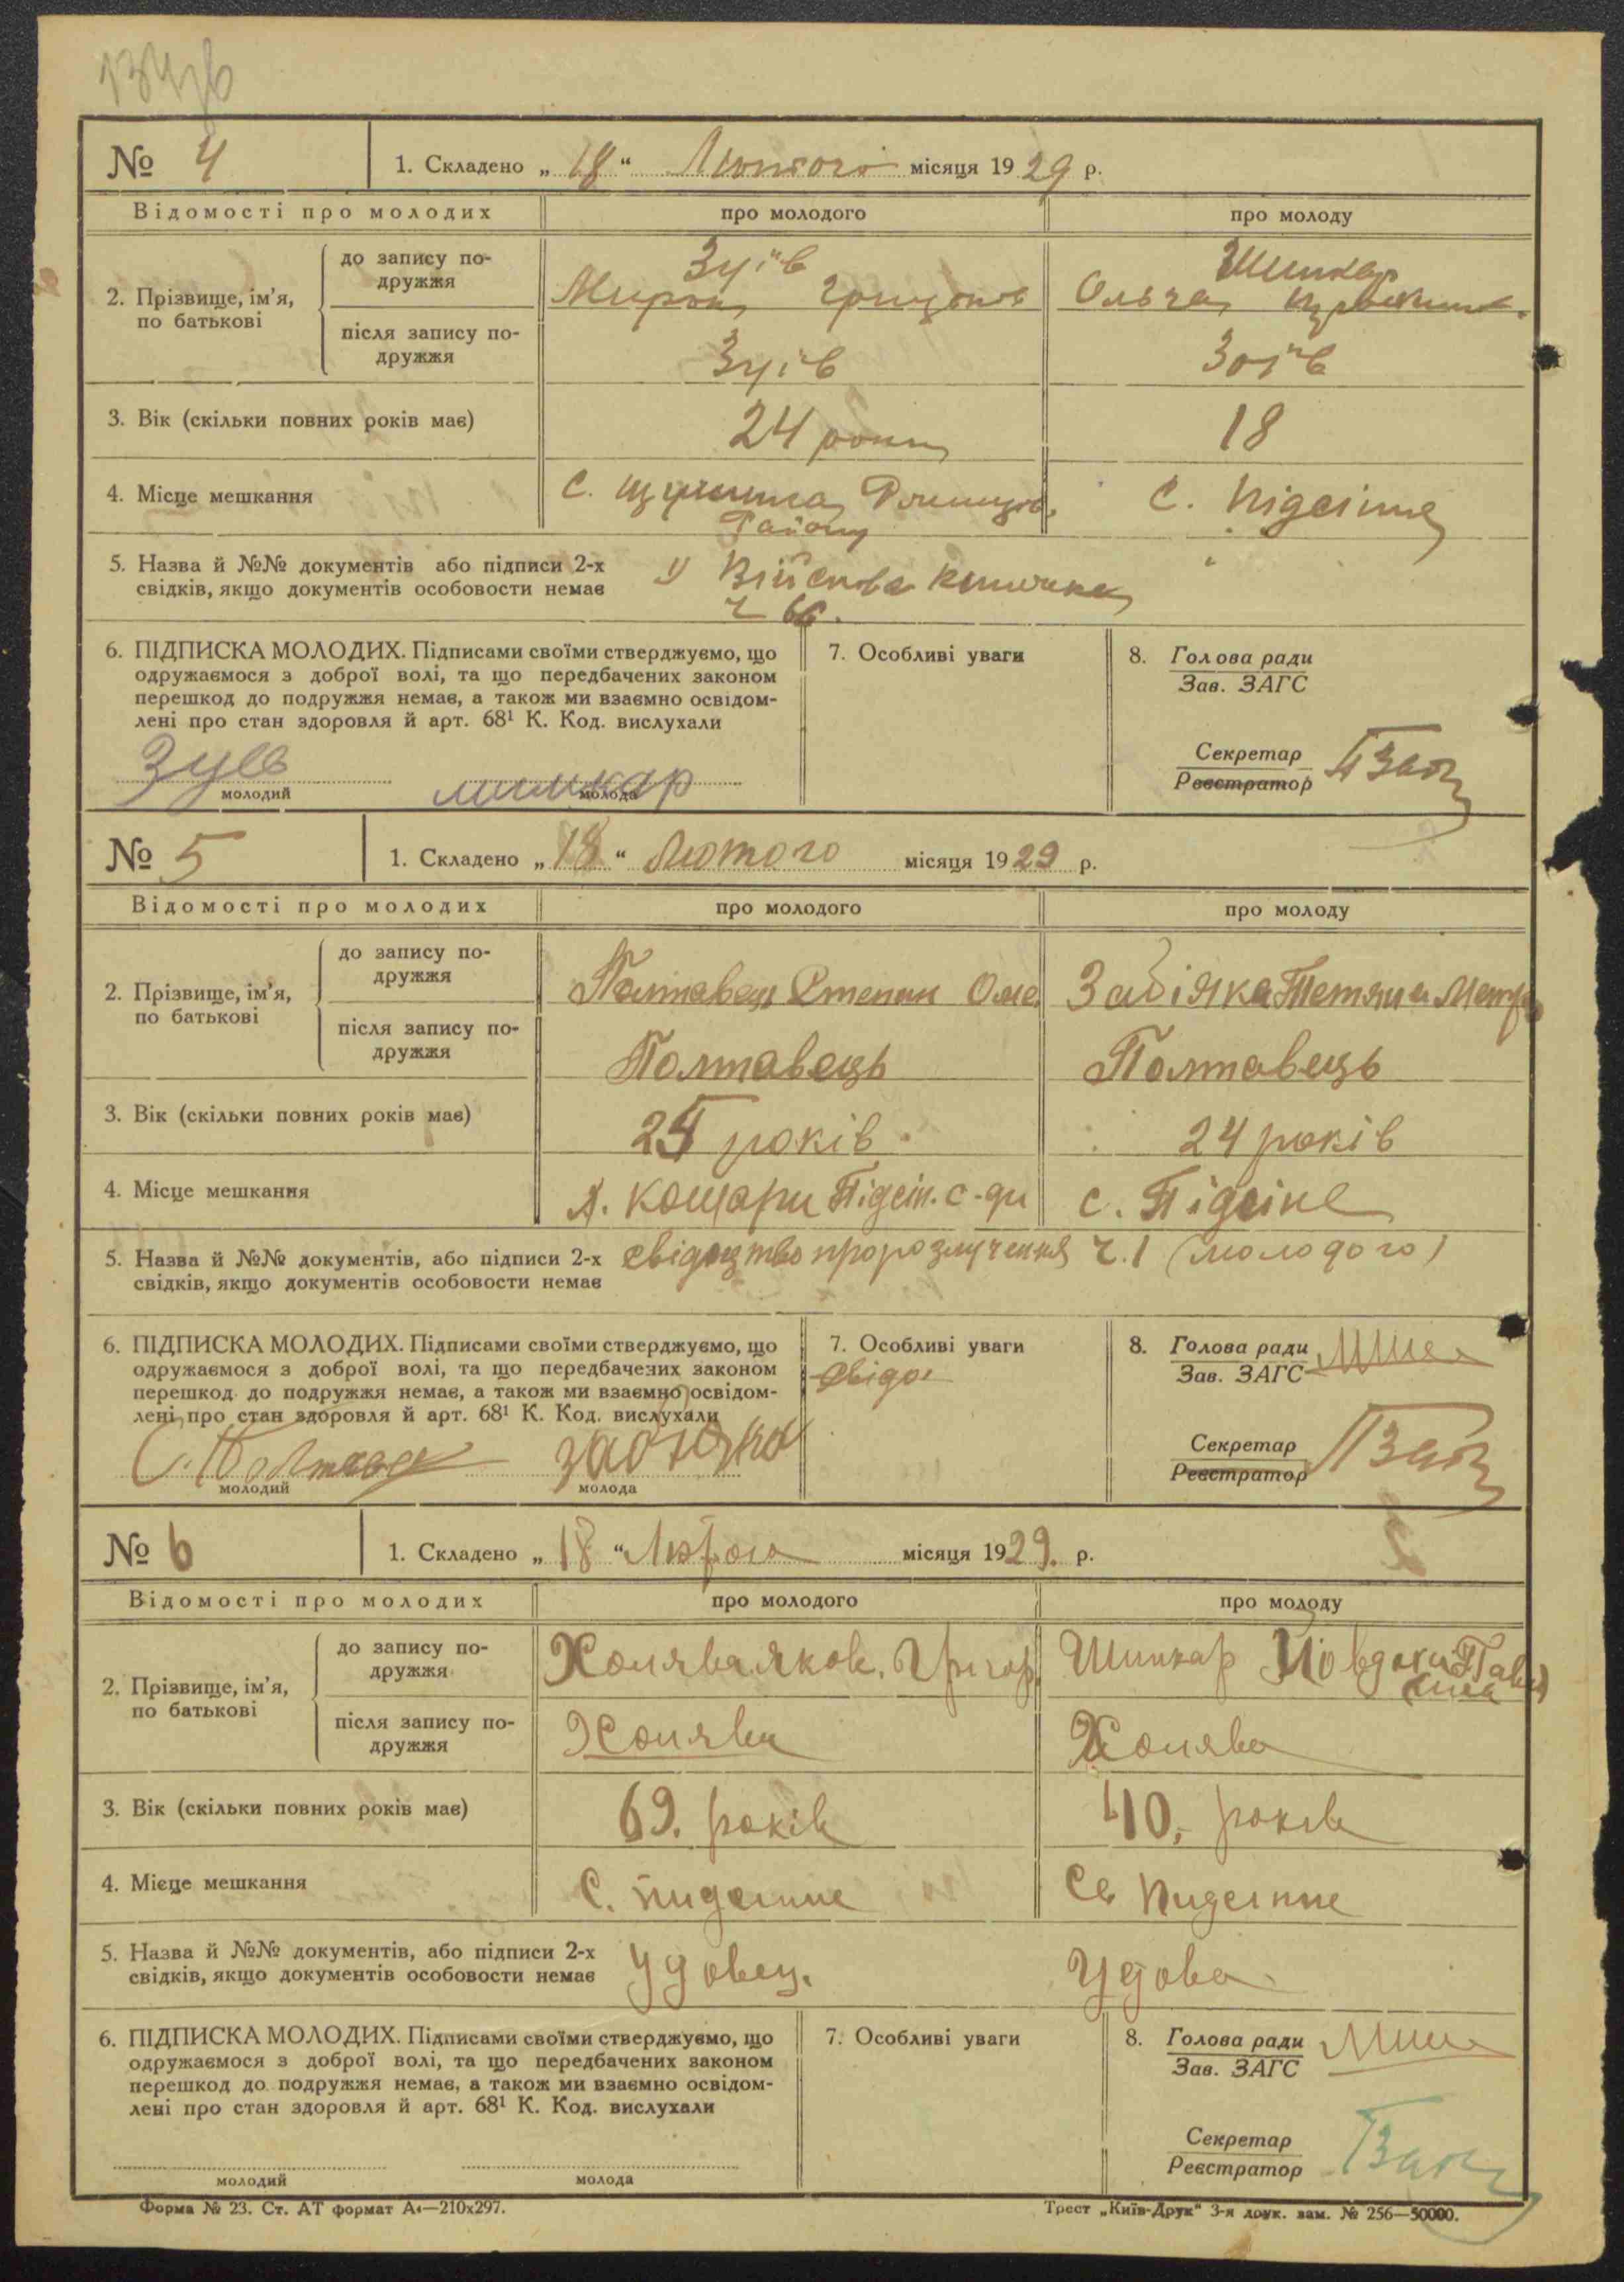 № 4 1. Складено „18“ Лютого місяця 1929 р.
Відомості про молодих про молодого про молоду
2. Прізвище, ім’я, по батькові
до запису подружжя
Зуїв Шинкар
Мирон Ольга
після запису подружжя
Зуїв Зоїв
3. Вік (скільки повних років має) 24 роки 18
4. Місце мешкання С. С. Підсінне
Району
5. Назва й №№ документів або підписи 2-х У Військова книжка
свідків, якщо документів особовости немає ч 66.
6. ПІДПИСКА МОЛОДИХ. Підписами своїми стверджуємо, що
одружаємося з доброї волі, та що передбачених законом
перешкод до подружжя немає, а також ми взаємно освідом-
лені про стан здоровля й арт. 68¹ К. Код. вислухали
Зуев шинкар
молодий молода
7. Особливі уваги
8. Голова ради
Зав. ЗАГС
Секретар
Реєстратор
№ 5 1. Складено „18“ Лютого місяця 1929 р.
Відомості про молодих про молодого про молоду
2. Прізвище, ім’я, по батькові
до запису подружжя
Полтавець Степан Оме. Забіяка Тетяна
після запису подружжя
Полтавець Полтавець
3. Вік (скільки повних років має) 25 років 24 років
4. Місце мешкання х. Кошари Підсін. с-ди с. Підсіне
5. Назва й №№ документів, або підписи 2-х свідоцтво про розлучення ч. 1 (молодого)
свідків, якщо документів особовости немає
6. ПІДПИСКА МОЛОДИХ. Підписами своїми стверджуємо, що
одружаємося з доброї волі, та що передбачених законом
перешкод до подружжя немає, а також ми взаємно освідом-
лені про стан здоровля й арт. 68¹ К. Код. вислухали
молодий молода
7. Особливі уваги
8. Голова ради
Зав. ЗАГС
Секретар
Реєстратор
№ 6 1. Складено „18“ Лютого місяця 1929. р.
Відомості про молодих про молодого про молоду
2. Прізвище, ім’я, по батькові
до запису подружжя
Холява Яков. Григор. Шинкар
після запису подружжя
Холява Холява
3. Вік (скільки повних років має) 69. років 40. років
4. Місце мешкання С. Пидсинне Се Пидсинне
5. Назва й №№ документів, або підписи 2-х Удовец. Удова
свідків, якщо документів особовости немає
6. ПІДПИСКА МОЛОДИХ. Підписами своїми стверджуємо, що
одружаємося з доброї волі, та що передбачених законом
перешкод до подружжя немає, а також ми взаємно освідом-
лені про стан здоровля й арт. 68¹ К. Код. вислухали
молодий молода
7. Особливі уваги
8. Голова ради
Зав. ЗАГС
Секретар
Реєстратор
Форма № 23. Ст. АТ формат А₄—210х297. Трест „Київ-Друк“ 3-я друк. зам. № 256—50000.